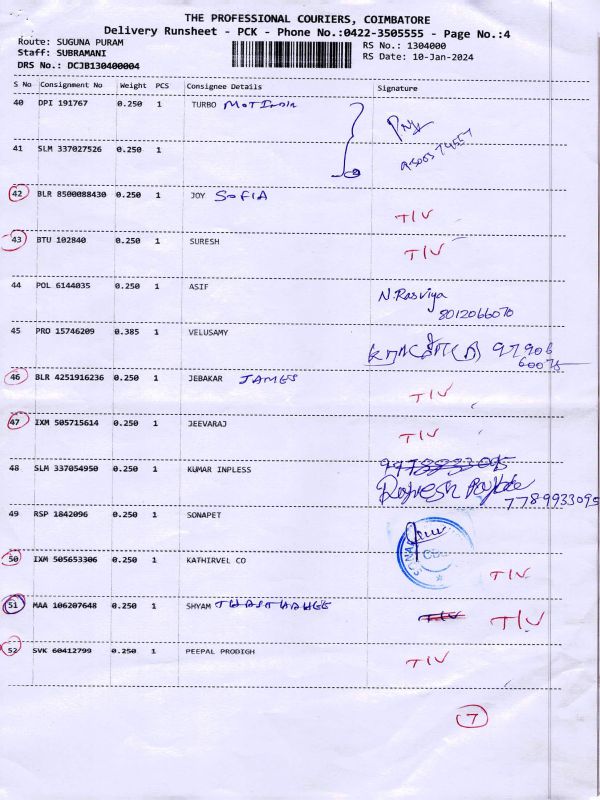 THE PROFESSIONAL COURIERS, COIMBATORE
Delivery Runsheet - PCK - Phone No.:0422-3505555 - Page No.:4
Route: SUGUNA PURAM RS No.: 1304000
Staff: SUBRAMANI RS Date: 10-Jan-2024
DRS No.: DCJB130400004
S No Consignment No Weight PCS Consignee Details Signature
40 DPI 191767 0.250 1 TURBO MOT India
41 SLM 337027526 0.250 1
42 BLR 8500088430 0.250 1 JOY SOFIA T/V
43 BTU 102840 0.250 1 SURESH T/V
44 POL 6144035 0.250 1 ASIF N.Rasviya
8012066070
45 PRO 15746209 0.385 1 VELUSAMY 97906
60075
46 BLR 4251916236 0.250 1 JEBAKAR JAMES T/V
47 IXM 505715614 0.250 1 JEEVARAJ T/V
48 SLM 337054950 0.250 1 KUMAR INPLESS
7789933095
49 RSP 1842096 0.250 1 SONAPET
50 IXM 505653306 0.250 1 KATHIRVEL CO T/V
51 MAA 106207648 0.250 1 SHYAM T/V T/V
52 SVK 60412799 0.250 1 PEEPAL PRODIGH T/V
7